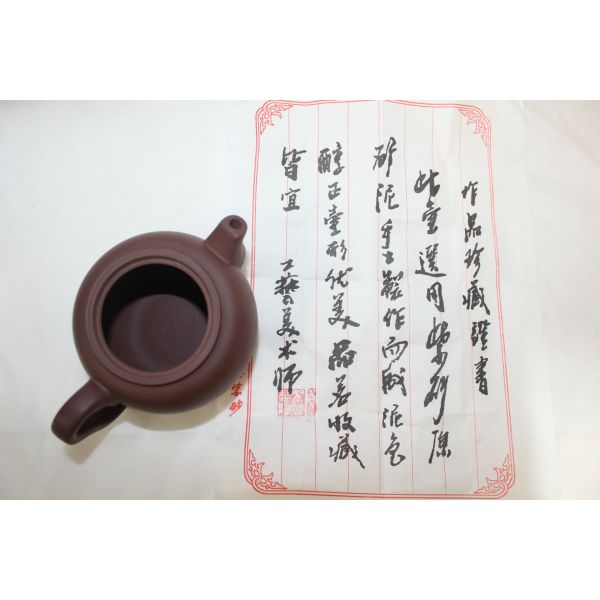 作品珍藏證書
此壶選用紫砂原
矿泥手工製作而成泥色
醇正壶形优美品茗收藏
皆宜
工藝美术师
紫砂